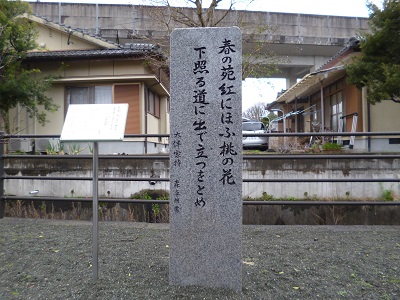 春の苑紅にほふ桃の花
下照る道に出で立つをとめ
大伴家持